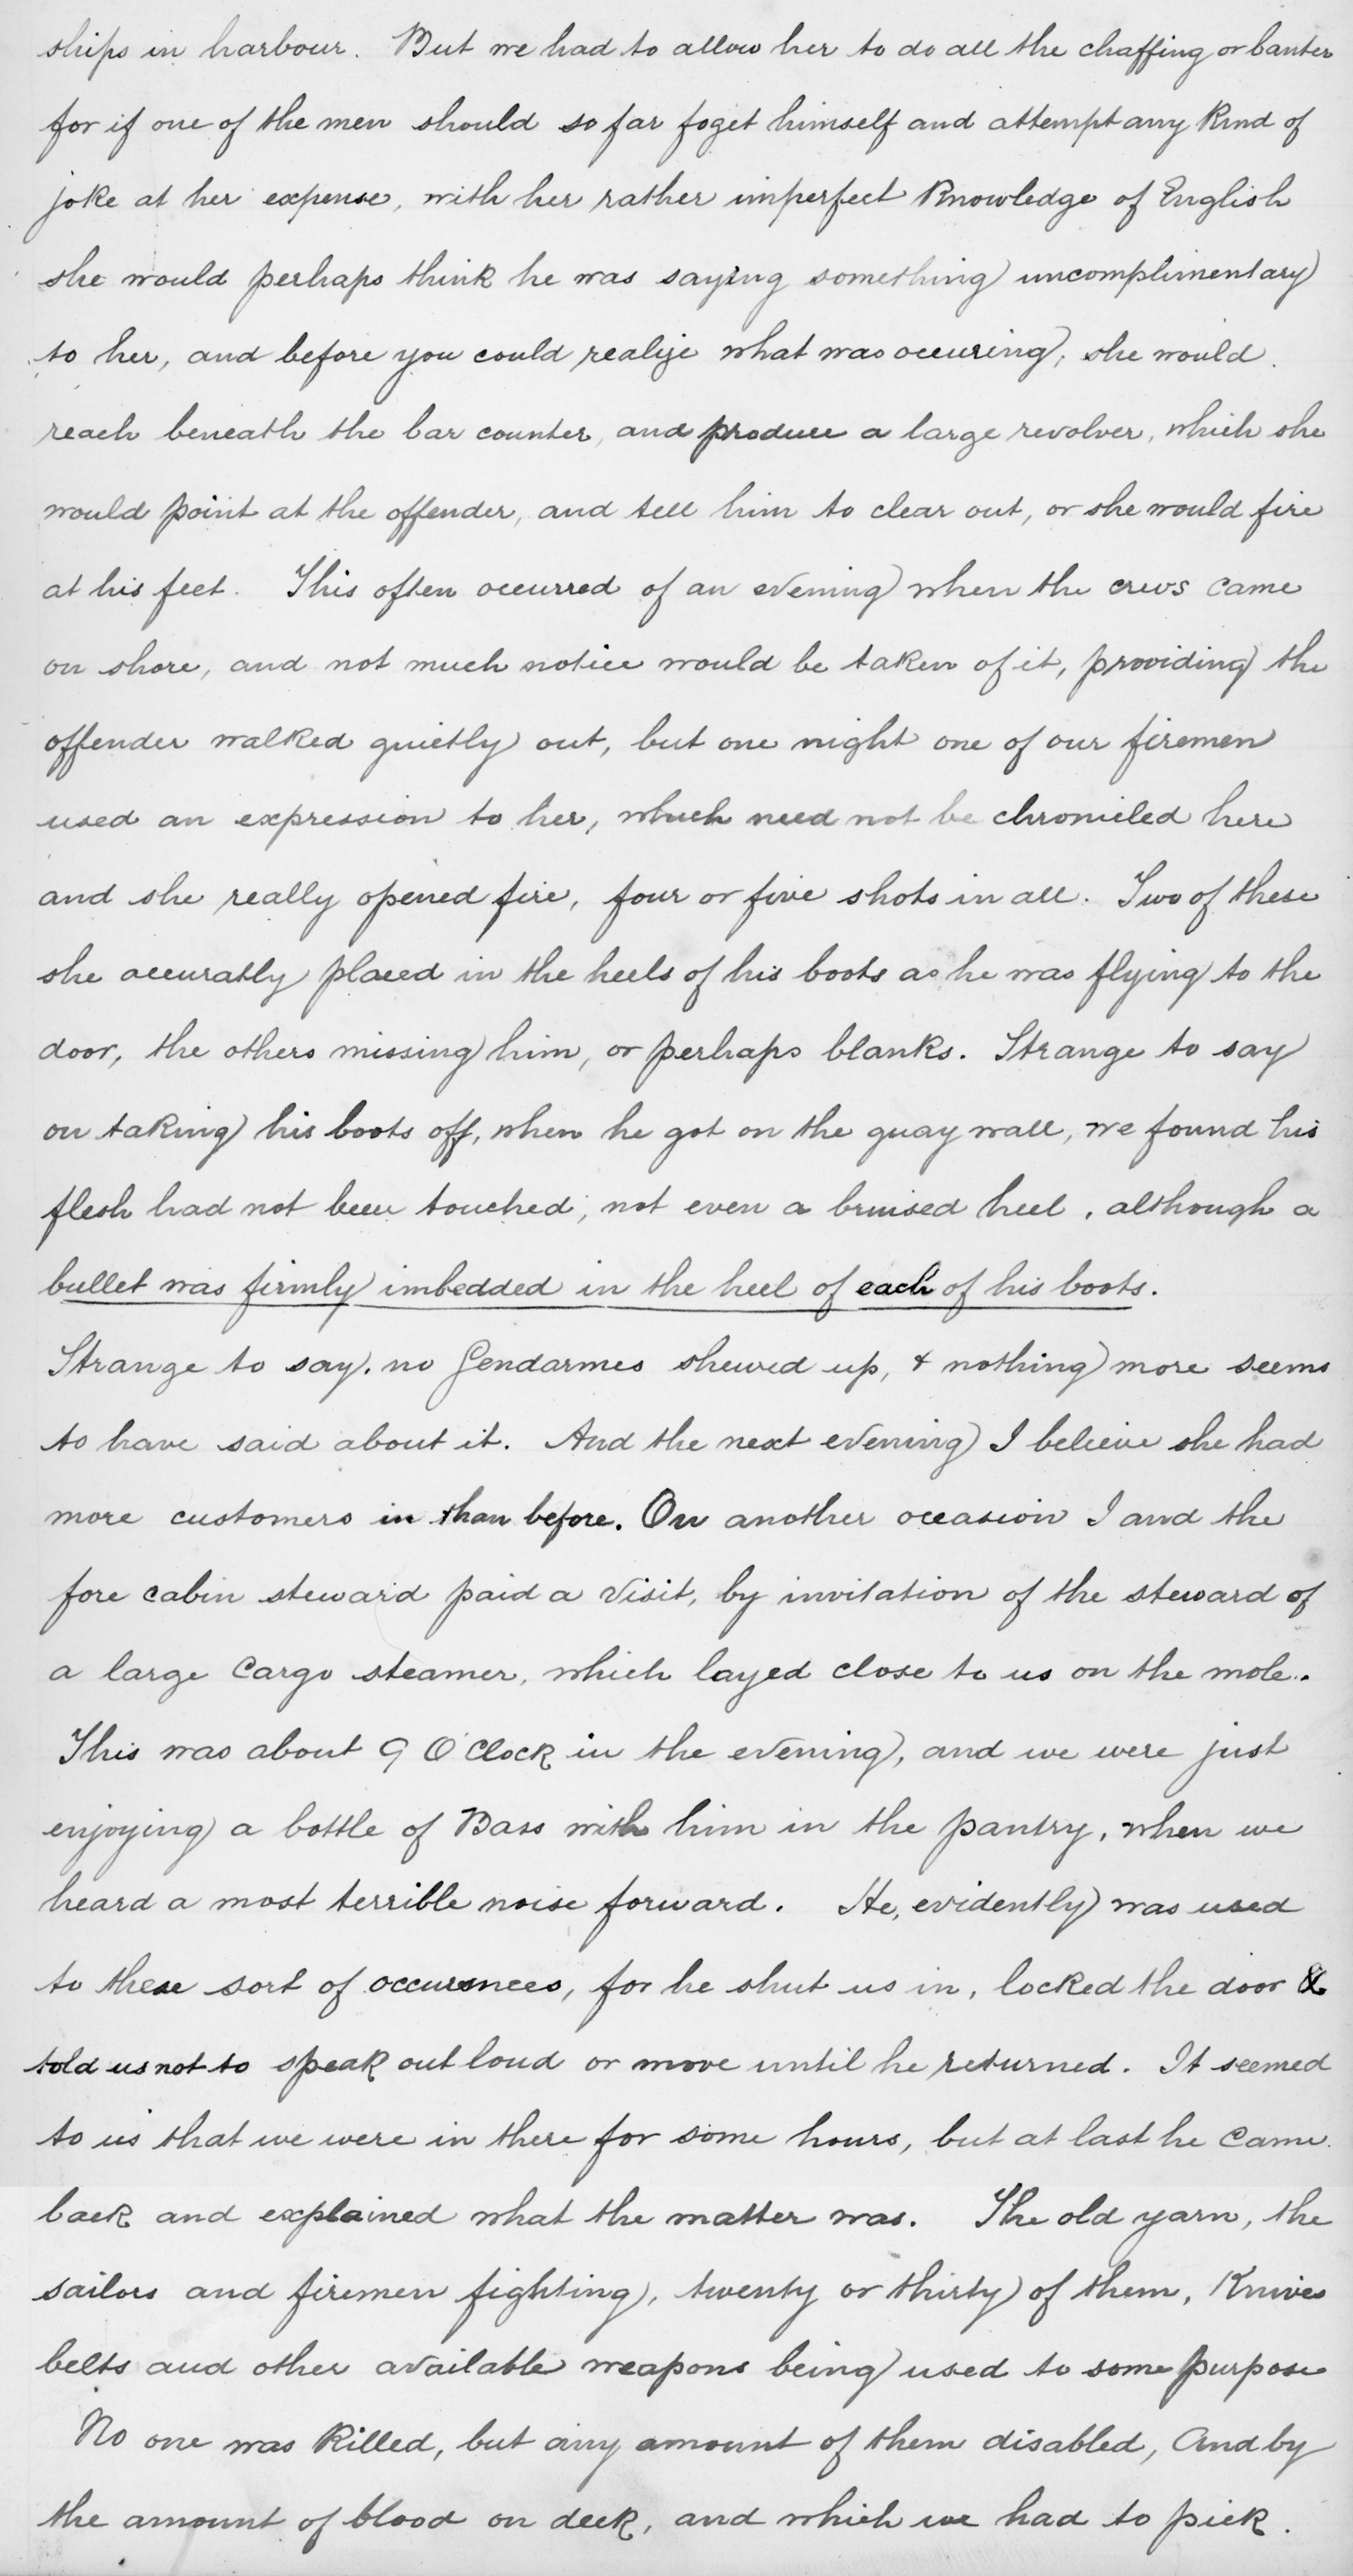 ships in harbour. But we had to allow her to do all the chaffing or banter
for if one of the men should so far foget himself and attempt any kind of
joke at her expense, with her rather imperfect knowledge of English
she would perhaps think he was saying something uncomplimentary
to her, and before you could realize what was occuring, she would
reach beneath the bar counter, and produce a large revolver, which she
would point at the offender, and tell him to clear out, or she would fire
at his feet. This often occurred of an evening when the crews came
on shore, and not much notice would be taken of it, providing the
offender walked quietly out, but one night one of our firemen
used an expression to her, which need not be chronicled here
and she really opened fire, four or five shots in all. Two of these
she accuratly placed in the heels of his boots as he was flying to the
door, the others missing him, or perhaps blanks. Strange to say
on taking his boots off, when he got on the quay wall, we found his
flesh had not been touched, not even a bruised heel, although a
bullet was firmly imbedded in the heel of each of his boots.
Strange to say, no Gendarmes shewed up, & nothing more seems
to have said about it. And the next evening I believe she had
more customers in than before. On another occasion I and the
fore cabin steward paid a visit, by invitation of the steward of
a large cargo steamer, which layed close to us on the mole.
This was about 9 O'Clock in the evening, and we were just
enjoying a bottle of Bass with him in the pantry, when we
heard a most terrible noise forward. He, evidently was used
to these sort of occurences, for he shut us in, locked the door &
told us not to speak out loud or move until he returned. It seemed
to us that we were in there for some hours, but at last he came
back and explained what the matter was. The old yarn, the
sailors and firemen fighting, twenty or thirty of them, Knives
belts and other available weapons being used to some purpose
No one was killed, but any amount of them disabled, And by
the amount of blood on deck, and which we had to pick.